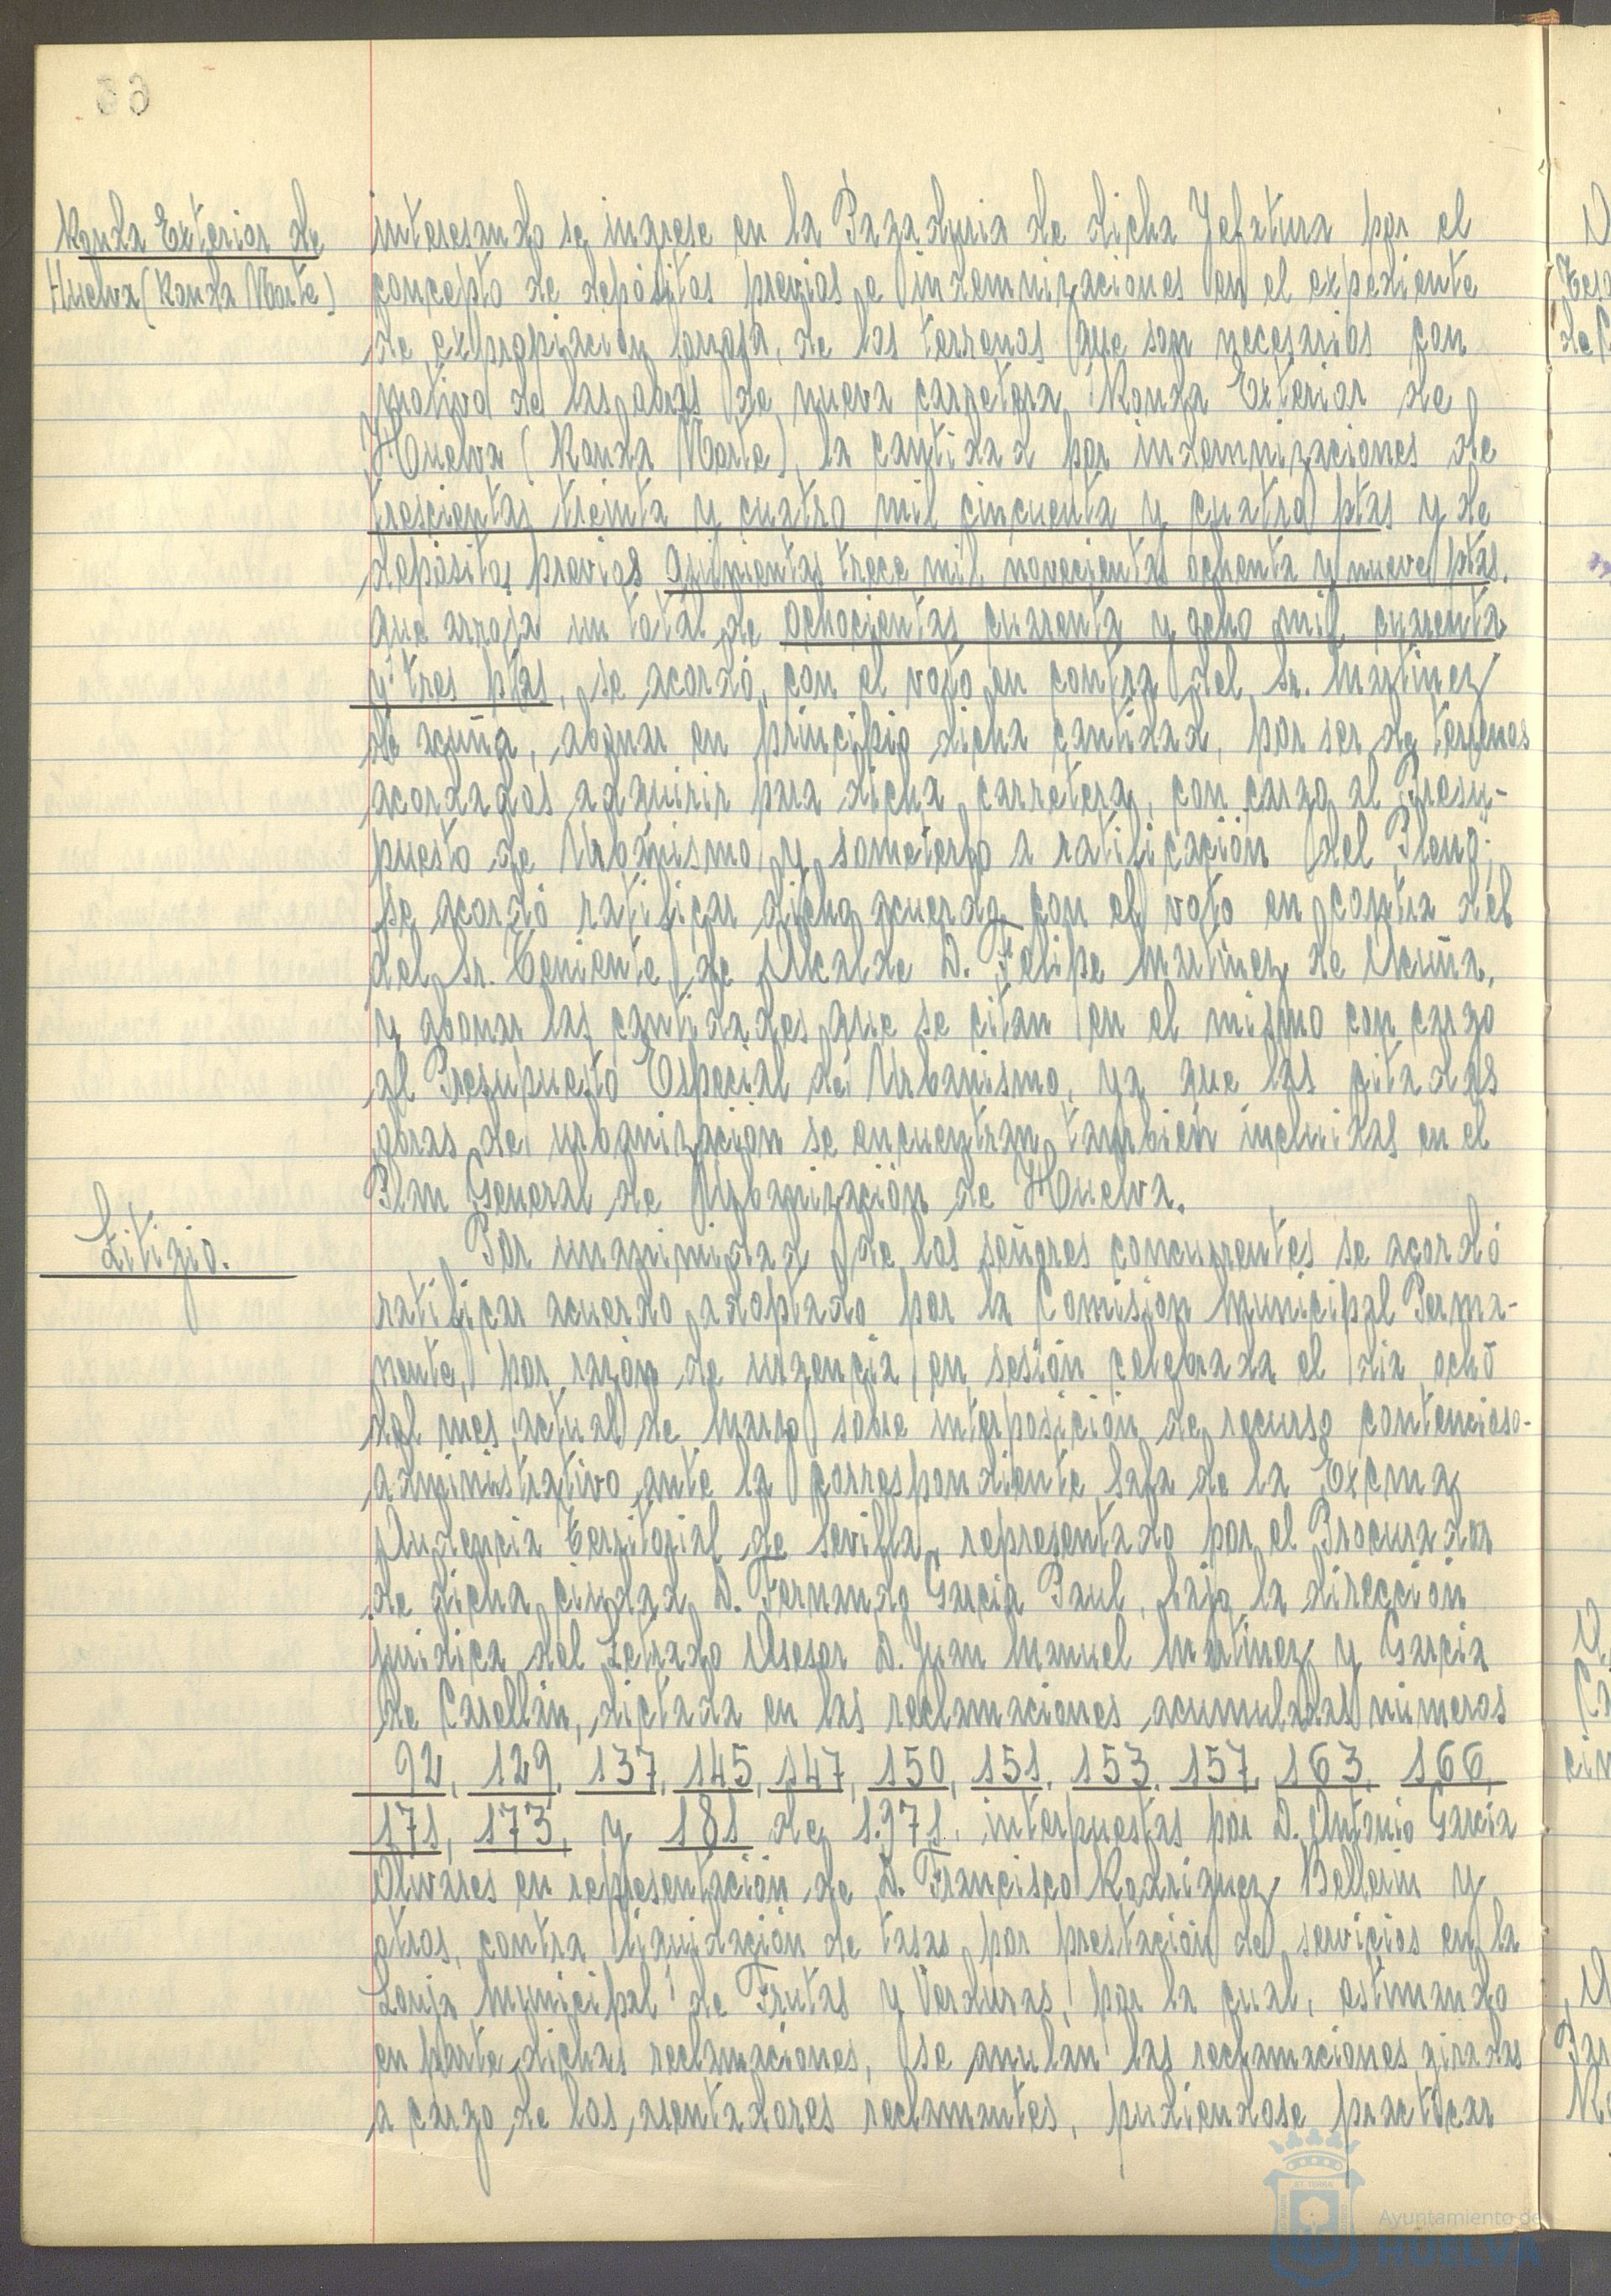 Ronda Exterior de
Huelva (Ronda Norte)
interesando se ingrese en la Pagaduria de dicha Jefatura por el
concepto de depósitos previos e indemnizaciones en el expediente
de expropiación forzosa, de los terrenos que son necesarios con
motivo de las obras de nueva carretera Ronda Exterior de
Huelva (Ronda Norte), la cantidad por indemnizaciones de
trescientas treinta y cuatro mil cincuenta y cuatro ptas y de
depósitos previos quinientas trece mil novecientas ochenta y nueve ptas.
que arroja un total de ochocientas cuarenta y ocho mil cuarenta
y tres ptas, se acordó, con el voto en contra del Sr. Martinez
de acuña, abonar en principio dicha cantidad, por ser de terrenos
acordados adquirir para dicha carretera, con cargo al Presu-
puesto de Urbanismo y someterlo a ratificación del Pleno";
se acordó ratificar dicho acuerdo con el voto en contra del
del Sr. Teniente de Alcalde D. Felipe Martinez de Acuña,
y abonar las cantidades que se citan en el mismo con cargo
al Presupuesto Especial de Urbanismo, ya que las citadas
obras de urbanización se encuentran también incluidas en el
Plan General de Urbanización de Huelva.
Litigio.
Por unanimidad de los señores concurrentes se acordó
ratificar acuerdo adoptado por la Comisión Municipal Perma-
nente, por razón de urgencia en sesión celebrada el día ocho
del mes actual de Marzo sobre interposición de recurso contencioso-
administrativo ante la correspondiente Sala de la Excma
Audencia Territorial de Sevilla, representado por el Procurador
de dicha ciudad D. Fernando García Paul, bajo la dirección
juridica del Letrado Asesor D. Juan Manuel Martinez y Garcia
de Casellán, dictada en las reclamaciones acumuladas números
92, 129, 137, 145, 147, 150, 151, 153, 157, 163, 166,
171, 173, y 181 de 1.971, interpuestas por D. Antonio Garcia
Olivares en representación de D. Francisco Rodriguez Bellerin y
otros, contra liquidación de tasas por prestación de servicios en la
Lonja Municipal de Frutas y Verduras, por la cual, estimando
en parte dichas reclamaciones, se anulan las reclamaciones giradas
a cargo de los asentadores reclamantes, pudiendose practicar
Ayuntamiento de
HUELVA